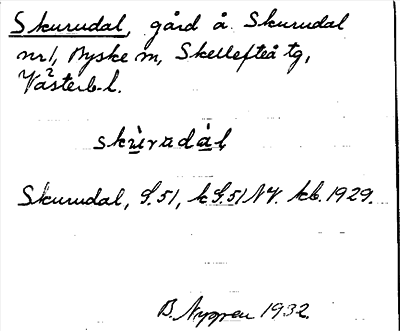 Skurudal, gård å Skurudal
nr 1, Byske sn, Skellefteå tg,
Västerb. l.
skùrudál
Skurudal, S.51, k S.51 NV. kb. 1929.
B. Nygren 1932.